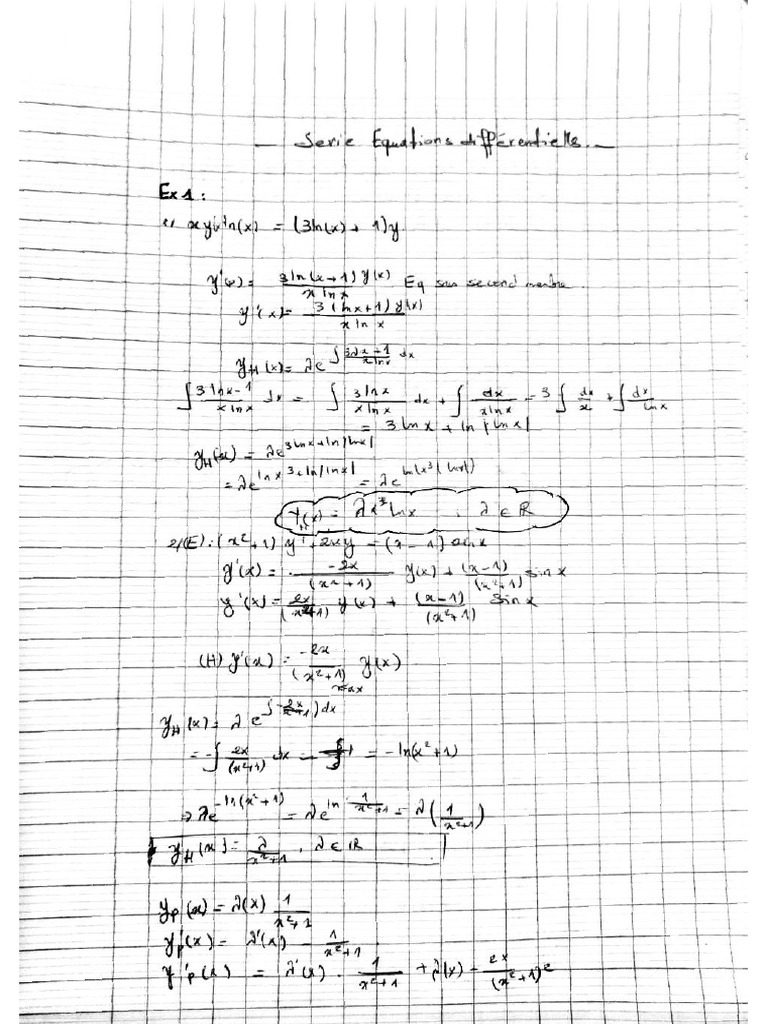 _ Serie Equations différentielles _
Ex 1 :
1) x y'(x) ln(x) = (3ln(x) + 1)y
y'(x) = 3 ln(x+1) y(x) / x ln x Eq sans second membre
y'(x) = 3 (lnx+1) y(x) / x ln x
y_H(x) = λe^∫ 3lnx+1 / x lnx dx
∫ 3 lnx-1 / x lnx dx = ∫ 3 lnx / x lnx dx + ∫ dx / x lnx = 3 ∫ dx / x + ∫ dx / lnx
= 3 ln x + ln |lnx|
y_H(x) = λe^3lnx+ln|lnx|
= λe^lnx^3+ln|lnx| = λe^ln(x^3(lnx))
y_H(x) = λx^3 lnx , λ ∈ ℝ
2/(E) : (x²+1) y' + 2xy = (x-1) sinx
y'(x) = -2x / (x²+1) y(x) + (x-1) / (x²+1) sin x
y'(x) = 2x / (x²+1) y(x) + (x-1) / (x²+1) sin x
(H) y'(x) = -2x / (x²+1) y(x)
y_H(x) = λ e^∫ -2x / x²+1) dx
= -∫ 2x / (x²+1) dx = -ln(x²+1)
⇒ λe^-ln(x²+1) = λe^ln 1 / x²+1 = λ(1 / x²+1)
y_H(x) = λ / x²+1 , λ ∈ ℝ
y_p(x) = λ(x) 1 / x²+1
y'_p(x) = λ'(x) 1 / x²+1
y'_p(x) = λ'(x) . 1 / x²+1 + λ(x) - 2x / (x²+1)²